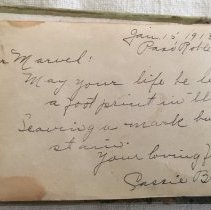 Jan. 15 191
Paso Roble
r Marvel:
May your life be li
a footprint in th
Leaving a mark bu
stain.
Your loving f
Sassie B